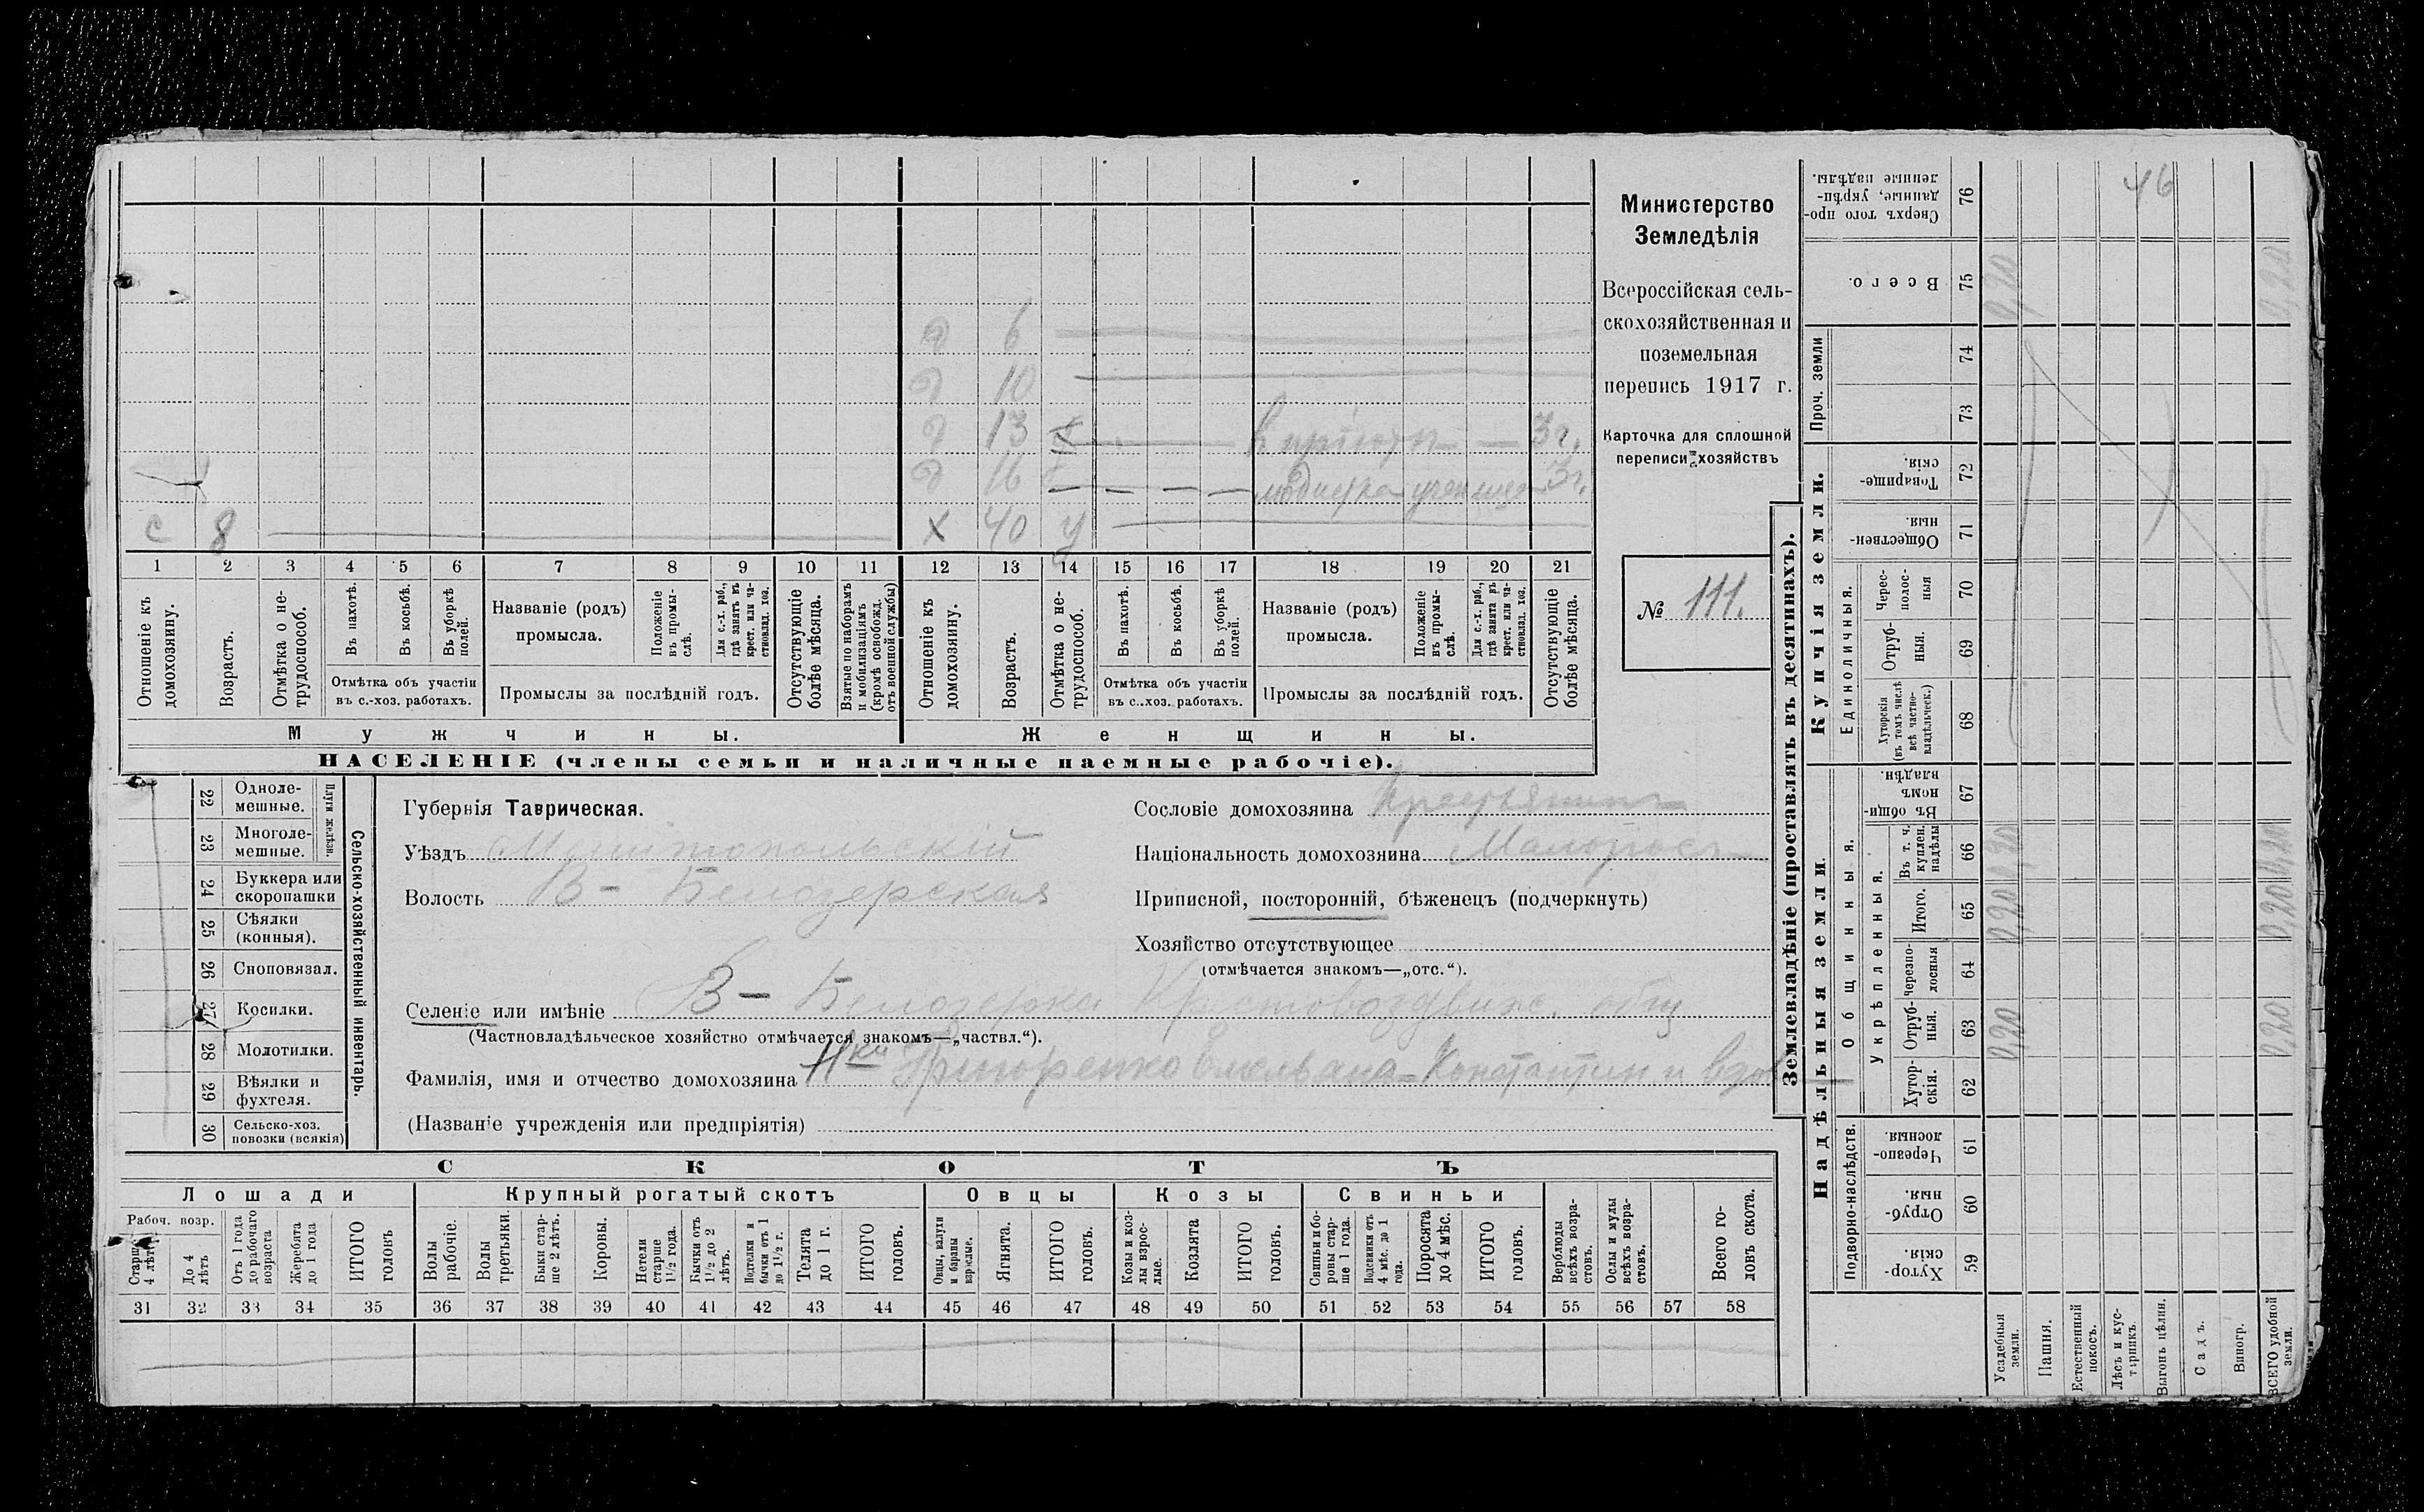 46
д 6
д 10
д 13
д 16
с 8
х 40 у
1 2 3 4 5 6 7 8 9 10 11 12 13 14 15 16 17 18 19 20 21
Отношеніе къ домохозяину.
Возрастъ.
Отмѣтка о нетрудоспособ.
Въ пахотѣ.
Въ косьбѣ.
Въ уборкѣ полей.
Отмѣтка объ участіи
въ с.-хоз. работахъ.
Названіе (родъ)
промысла.
Положеніе въ промыслѣ.
Для с.-х. раб., гдѣ занятъ въ крест. или частновлад. хоз.
Промыслы за послѣдній годъ.
Отсутствующіе болѣе мѣсяца.
Взятые по наборамъ и мобилизаціямъ (кромѣ освобожд. отъ военной службы)
Отношеніе къ домохозяину.
Возрастъ.
Отмѣтка о нетрудоспособ.
Въ пахотѣ.
Въ косьбѣ.
Въ уборкѣ полей.
Отмѣтка объ участіи
въ с.-хоз. работахъ.
Названіе (родъ)
промысла.
Положеніе въ промыслѣ.
Для с.-х. раб., гдѣ занята въ крест. или частновлад. хоз.
Промыслы за послѣдній годъ.
Отсутствующіе болѣе мѣсяца.
Мужчины.
Женщины.
НАСЕЛЕНІЕ (члены семьи и наличные наемные рабочіе).
Министерство
Земледѣлія
Всероссійская сель-
скохозяйственная и
поземельная
перепись 1917 г.
Карточка для сплошной
переписи хозяйствъ
№ 111.
22 Одноле-
мешные.
23 Многоле-
мешные.
Плуги желѣзн.
24 Буккера или
скоропашки
25 Сѣялки
(конныя).
26 Сноповязал.
27 Косилки.
28 Молотилки.
29 Вѣялки и
фухтеля.
30 Сельско-хоз.
повозки (всякія)
Сельско-хозяйственный инвентарь.
Губернія Таврическая.
Уѣздъ Мелитопольскій
Волость В-Белозерская
Селеніе или имѣніе В-Белозерка Крестовоздвиж. общ
(Частновладѣльческое хозяйство отмѣчается знакомъ—„частвл.“).
Фамилія, имя и отчество домохозяина
(Названіе учрежденія или предпріятія)
Сословіе домохозяина Крестьянинъ
Національность домохозяина Малоросъ
Приписной, посторонній, бѣженецъ (подчеркнуть)
Хозяйство отсутствующее
(отмѣчается знакомъ—„отс.“).
СКОТЪ
Лошади
Крупный рогатый скотъ
Овцы
Козы
Свиньи
Рабоч. возр.
Старше 4 лѣтъ
До 4 лѣтъ
Отъ 1 года до рабочаго возраста
Жеребята до 1 года
ИТОГО головъ
Волы рабочіе.
Волы третьяки.
Быки старше 2 лѣтъ.
Коровы.
Нетели старше 1½ года.
Бычки отъ 1½ до 2 лѣтъ.
Подтелки и бычки отъ 1 до 1½ г.
Телята до 1 г.
ИТОГО головъ.
Овцы, валухи и бараны взрослые.
Ягнята.
ИТОГО головъ.
Козы и козлы взрослые.
Козлята
ИТОГО головъ.
Свиньи и боровы старше 1 года.
Подсвинки отъ 4 мѣс. до 1 года.
Поросята до 4 мѣс.
ИТОГО головъ.
Верблюды всѣхъ возрастовъ.
Ослы и мулы всѣхъ возрастовъ.
Всего головъ скота.
31 32 33 34 35 36 37 38 39 40 41 42 43 44 45 46 47 48 49 50 51 52 53 54 55 56 57 58
Землевладѣніе (проставлять въ десятинахъ).
Купчія земли.
Надѣльныя земли.
Сверхъ того проданные, укрѣпленные надѣлы. 76
Всего. 75
Проч. земли 74
73
Товарищескія. 72
Общественныя. 71
Единоличныя.
Чересполосныя 70
Отрубныя. 69
Хуторскія (въ томъ числѣ всѣ частновладѣльческ.) 68
Общинныя.
Въ общиномъ владѣн. 67
Укрѣпленныя.
Въ т. ч. куплен. надѣлы 66
Итого. 65
Черезполосныя 64
Отрубныя. 63
Хуторскія. 62
Подворно-наслѣдств.
Черезполосныя. 61
Отрубныя. 60
Хуторскія. 59
0,20 0,20
Усадебныя земли.
Пашня.
Естественный покосъ.
Лѣсъ и кустарникъ.
Выгонъ цѣлин.
Садъ.
Виногр.
ВСЕГО удобной земли.